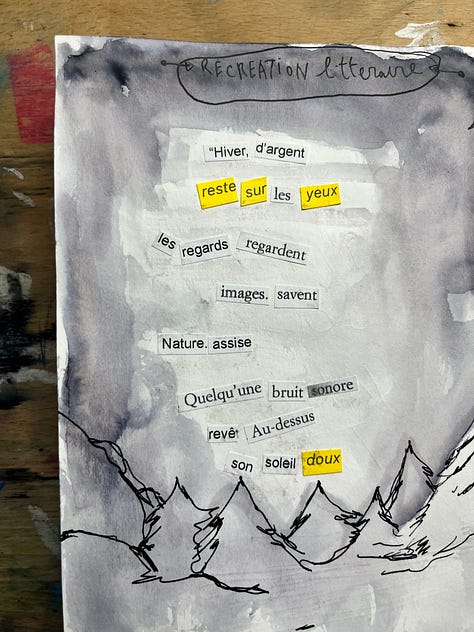 RECREATION litteraire
"Hiver, d'argent
reste sur les yeux
les regards regardent
images. savent
Nature. assise
Quelqu'une bruit sonore
revêt Au-dessus
son soleil doux